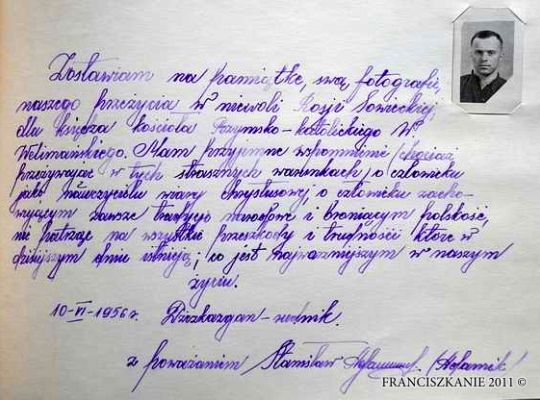 Zostawiam na pamiątkę, swą fotografię,
naszego przeżycia w niewoli Rosji sowieckiej,
dla księdza kościoła Rzymsko-katolickiego W
Welimańskiego. Mam przyjemne wspomnienie /chociaż
przeżywając w tych strasznych warunkach/ o człowieku
jako nauczycielu wiary chrystusowej, o człowieku zacho-
wującym zawsze tradycje narodowe i broniącym polskość,
nie patrząc na wszystkie przeszkody i trudności które w
dzisiejszym dniu istnieją; co jest najważniejszym w naszym
życiu.
10-VI-1956r. Dżezkazgan-rudnik.
z poważaniem Stanisław
FRANCISZKANIE 2011 ©